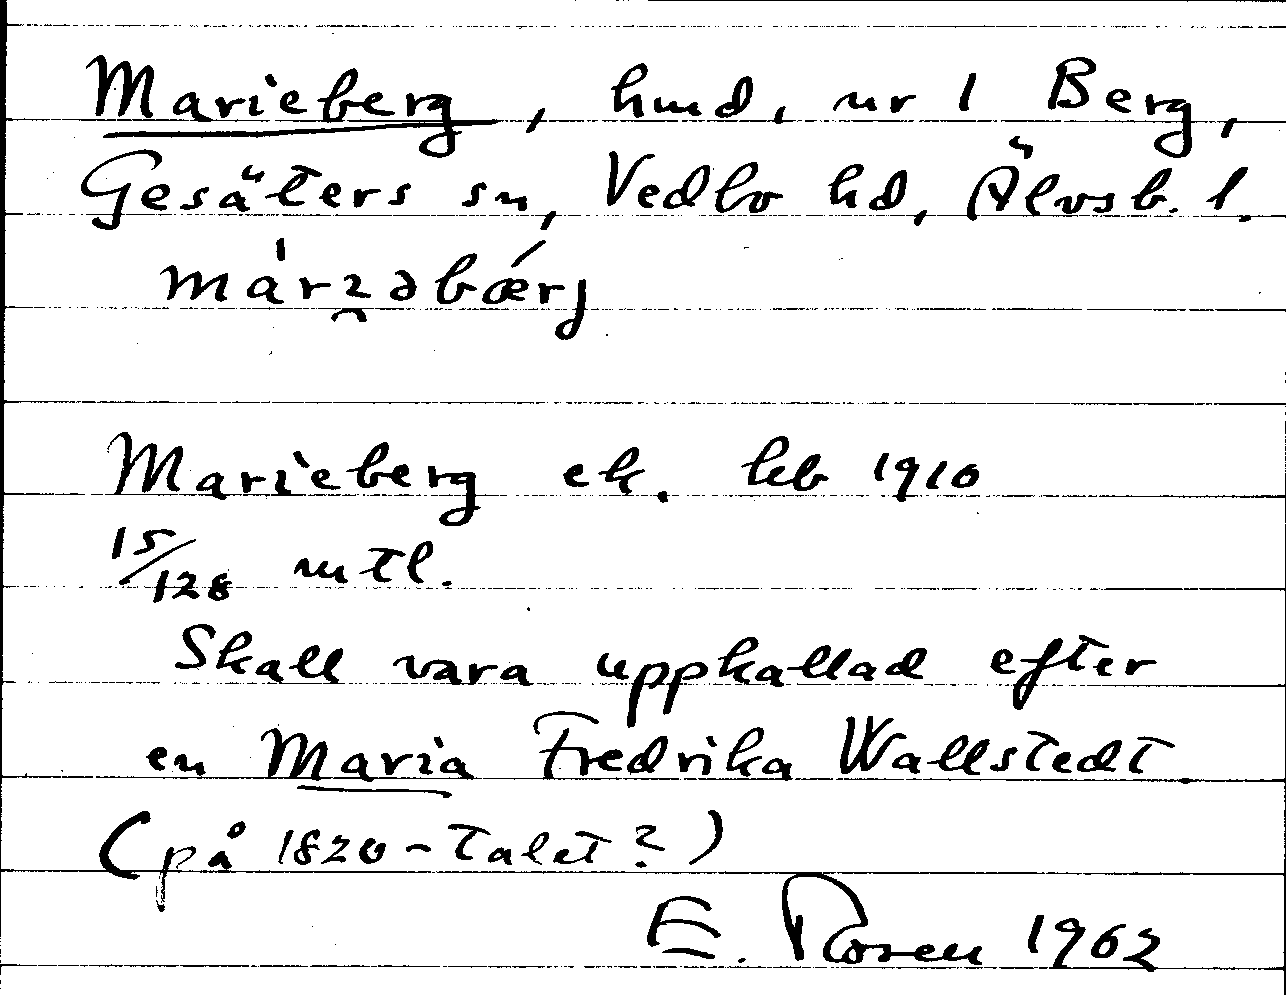 Marieberg, hmd, nr 1 Berg,
Gesäters sn, Vedbo hd, Älvsb. l.
Marieberg ek. kb 1910
15/128 mtl.
Skall vara uppkallad efter
en Maria Fredrika Wallstedt.
(på 1820-talet?)
E. Rosen 1962